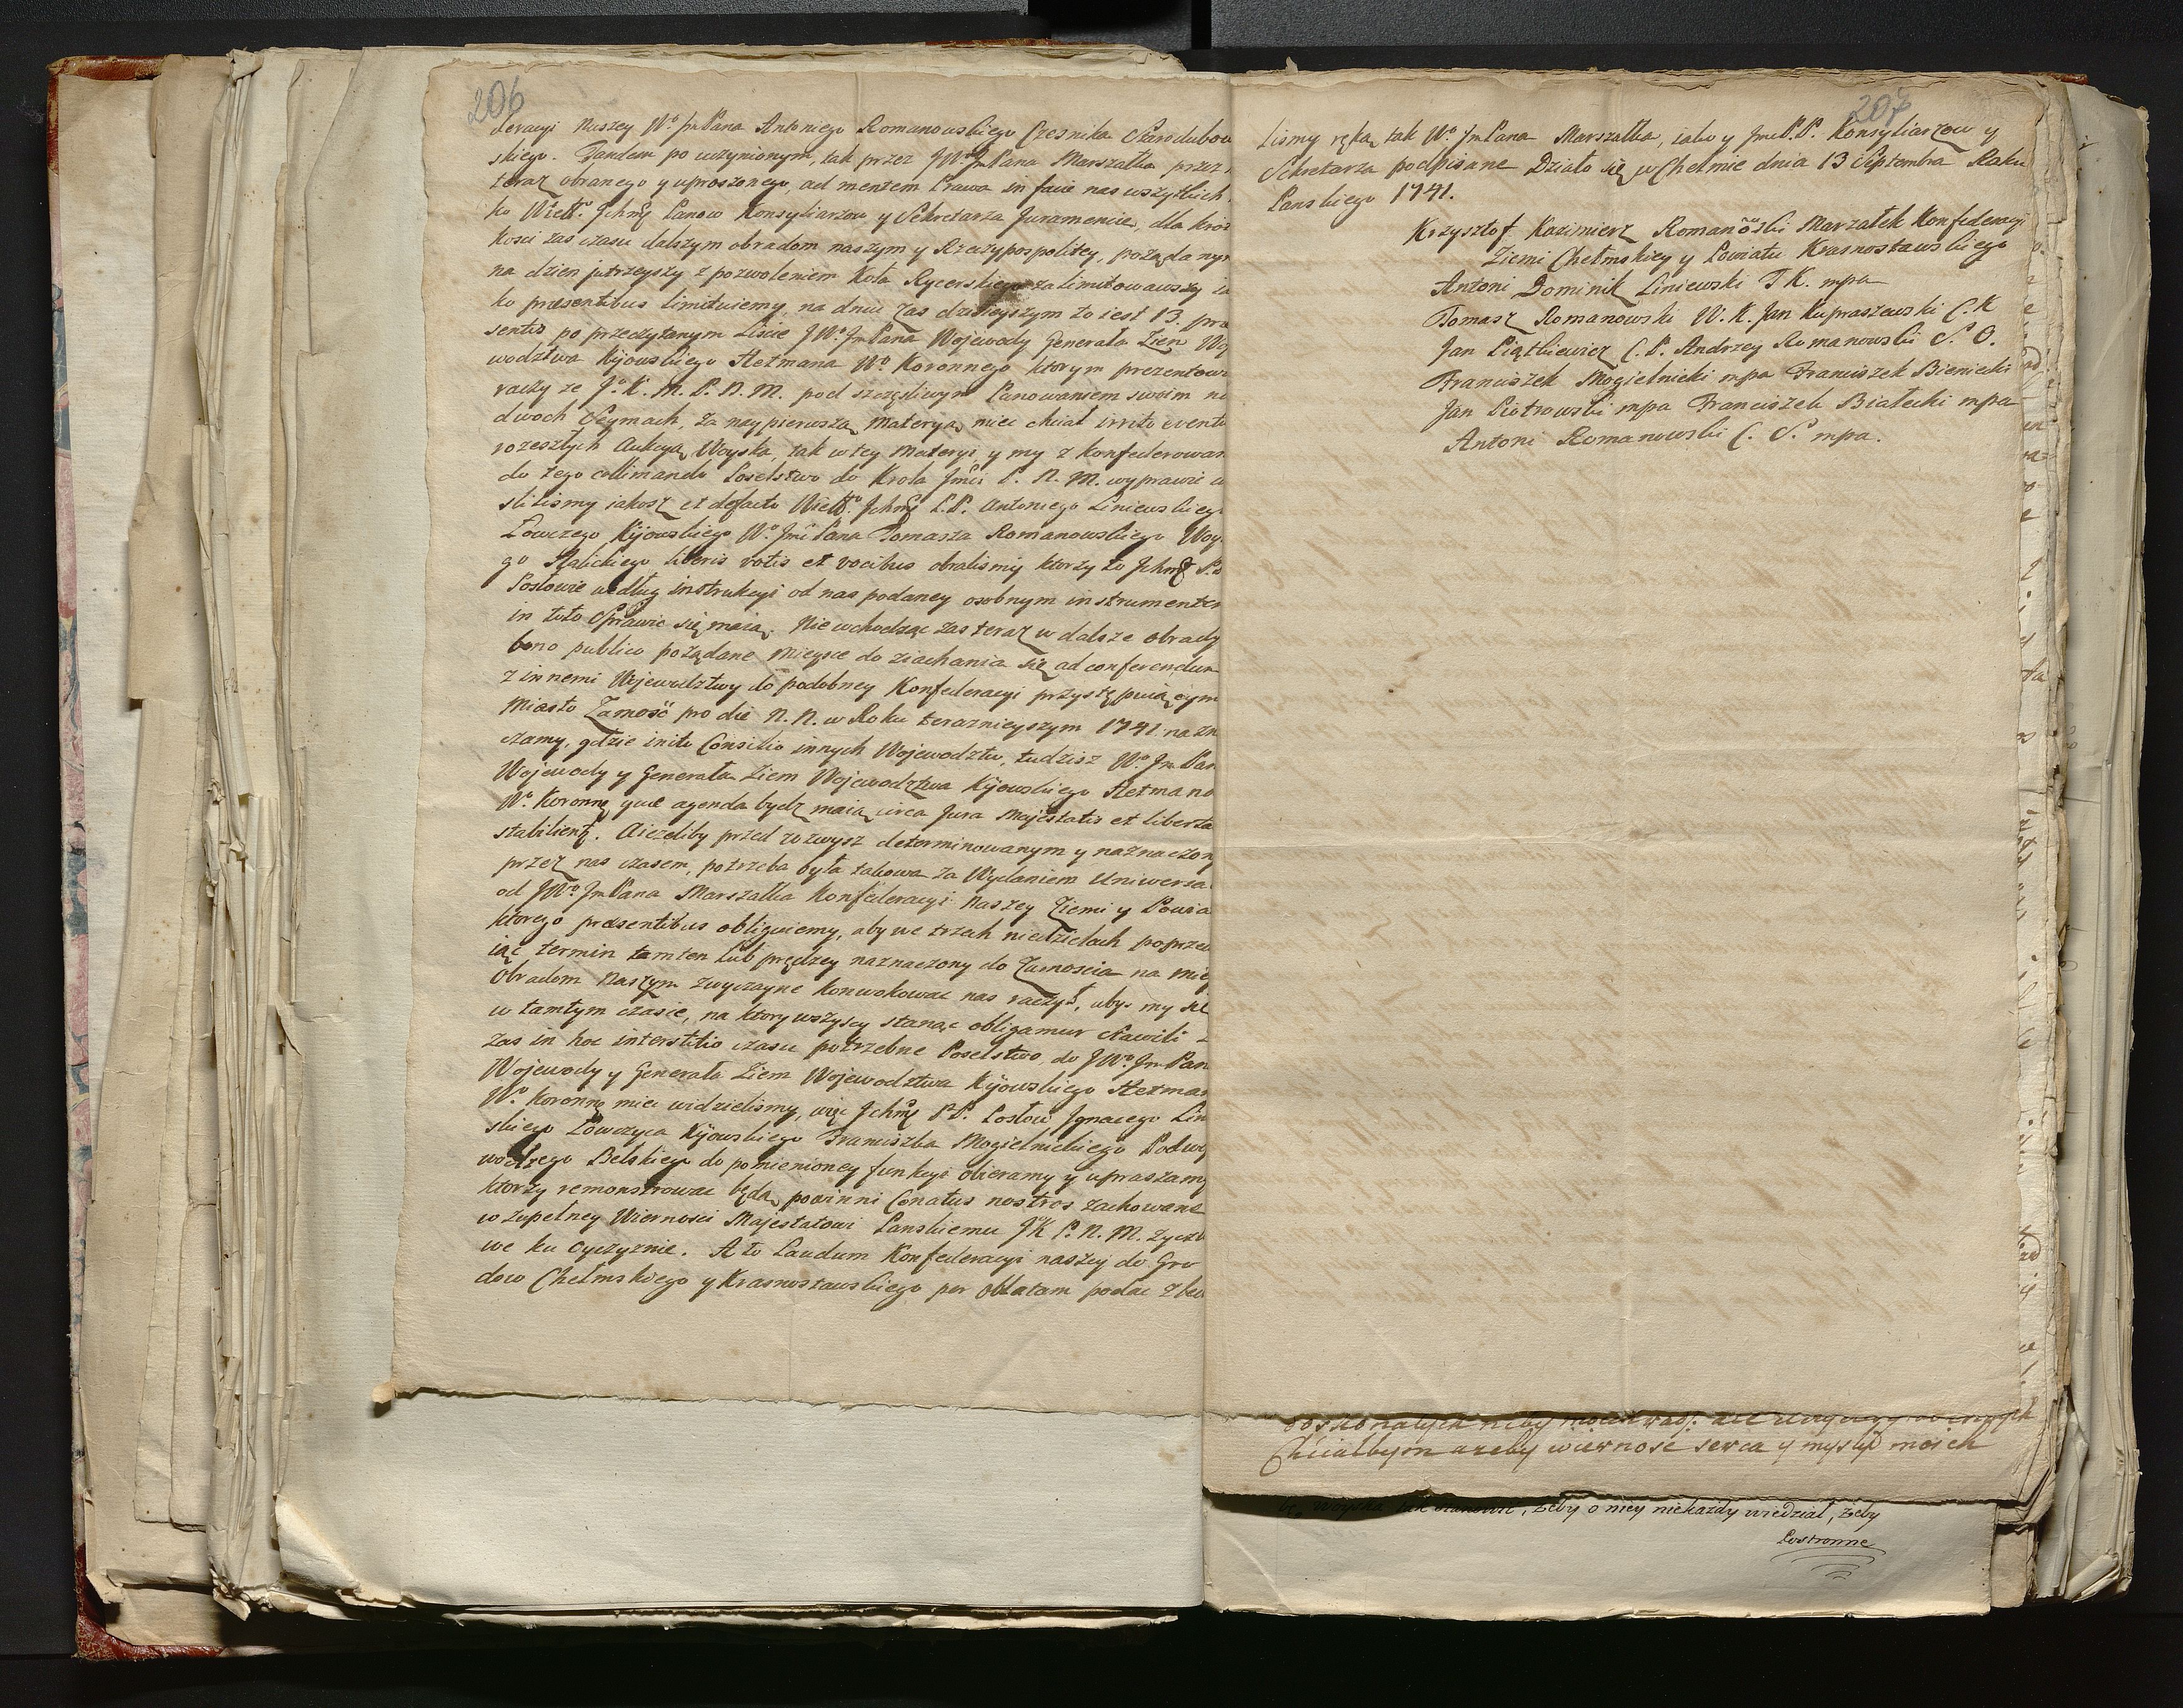 206
deracyi Naszey Wo JmPana Antoniego Romanowskiego Czesnika Starodubow
skiego. Tandem po uczynionym, tak przez JWo JmPana Marszałka przez
teraz obranego y uproszonego, ad mentem Prawa in facie nas wszytkich
ko Wiel. Jchmę Panow Konsyliarzow y Sekretarza Juramencie, dla krot
kosci zas czasu dalszym obradom naszym y Rzeczypospolitey, pożądanym
na dzien jutrzeyszy z pozwoleniem Koła Rycerskiego zalimitowawszy ia
ko præsentibus limituiemy, na dniu zas dzisieyszym to iest 13. præ
sentis po przeczytanym Liscie JWo JmPana Wojewody Generała Ziem Woj
wodztwa Kijowskiego Hetmana Wo Koronnego ktorym prezentowa
raczy ze Jo. K. M. P. N. M. pod szczęśliwym Panowaniem swoim na
dwoch Seymach, za naypierwszą Materyą miec chciał irrito eventu
rozeszłych Aukcyą Woyska, tak w tey Materyi y my z konfederowan
do tego collimando Poselstwo do Krola Jmci P. N. M. wyprawic u
slilismy jakosz et defacto Wiel. Jchmę P.P. Antoniego Liniewskiego
Łowczego Kijowskiego Wo. Jmci Pana Tomasza Romanowskiego Woy.
go Halickiego liberis votis et vocibus obralismy ktorzy to Jchmę P.P.
Posłowie według instrukcyi od nas podaney osobnym instrumentem
in toto sprawic się maią. Nie wchodząc zas teraz w dalsze obrady
bono publico pożądane Mieysce do ziachania się ad conferendum
z innemi Wojewodztwy do podobney Konfederacyi przystępuiącym
Miasto Zamość pro die N. N. w Roku teraznieyszym 1741 nazn
czamy, gdzie inito Consilio innych Wojewodztw, tudzisz Wo. Jm Pan
Wojewody y Generała Ziem Wojewodztwa Kijowskiego Hetmana
Wo. Koronnę quæ agenda bydz maią circa Jura Majestatis et liberta
stabilient. A ieżeliby przed zozwysz determinowanym y naznaczony
przez nas czasem, potrzeba była takowa za Wydaniem Uniwersa
od JWo. JmPana Marszałka Konfederacyi Naszey Ziemi y Powia
ktorego præsentibus obliguiemy, aby we trzech niedzielach poprze
iąc termin tamten lub prędzey naznaczony do Zamoscia na mie
Obradom Naszym zwyczayne konwokowac nas raczył, abys my się
w tamtym czasie, na ktory wszyscy stanąc obligamur stawili
Zas in hoc interstitio czasu potrzebne Poselstwo, do JWo. Jm Pan
Wojewody y Generała Ziem Wojewodztwa Kijowskiego Hetman
Wo. Koronnę miec widzielismy, więc Jchmę P.P. Posłow Jgnacego Lin
skiego Łowczyca Kijowskiego Franciszka Mogielnickiego Podwo
wodzego Bełskiego do pomienioney funkcyi obieramy y upraszamy
ktorzy remonstrowac będą powinni Conatus nostros zachowane
w zupełney Wiernosci Majestatowi Panskiemu JK P. N. M. życzl
we ku Oyczyznie. A to Laudum Konfederacyi naszej do Gro
dow Chełmskiego y Krasnostawskiego per Oblatam podac zle
207
lismy ręką tak Wo. Jm Pana Marszałka, iako y Jmc P.P. Konsyliarzow y
Sekretarza podpisane Działo się w Chełmie dnia 13 Septembra Roku
Panskiego 1741.
Krzysztof Kazimierz Romanowski Marzałek Konfederacyi
Ziemi Chełmskiey y Powiatu Krasnostawskiego
Antoni Dominik Liniewski Ł K. mpa
Tomasz Romanowski W. K. Jan Kupraszewski C. K
Jan Piątkiewicz C. P. Andrzey Romanowski S. O.
Franciszek Mogielnicki mpa Franciszek Bieniecki
Jan Piotrowski mpa Franciszek Białecki mpa
Antoni Romanowski C. S. mpa.
Chciałbym azeby wiernosc serca y mysli moich
żeby o niey niekażdy wiedział, żeby
Postronne